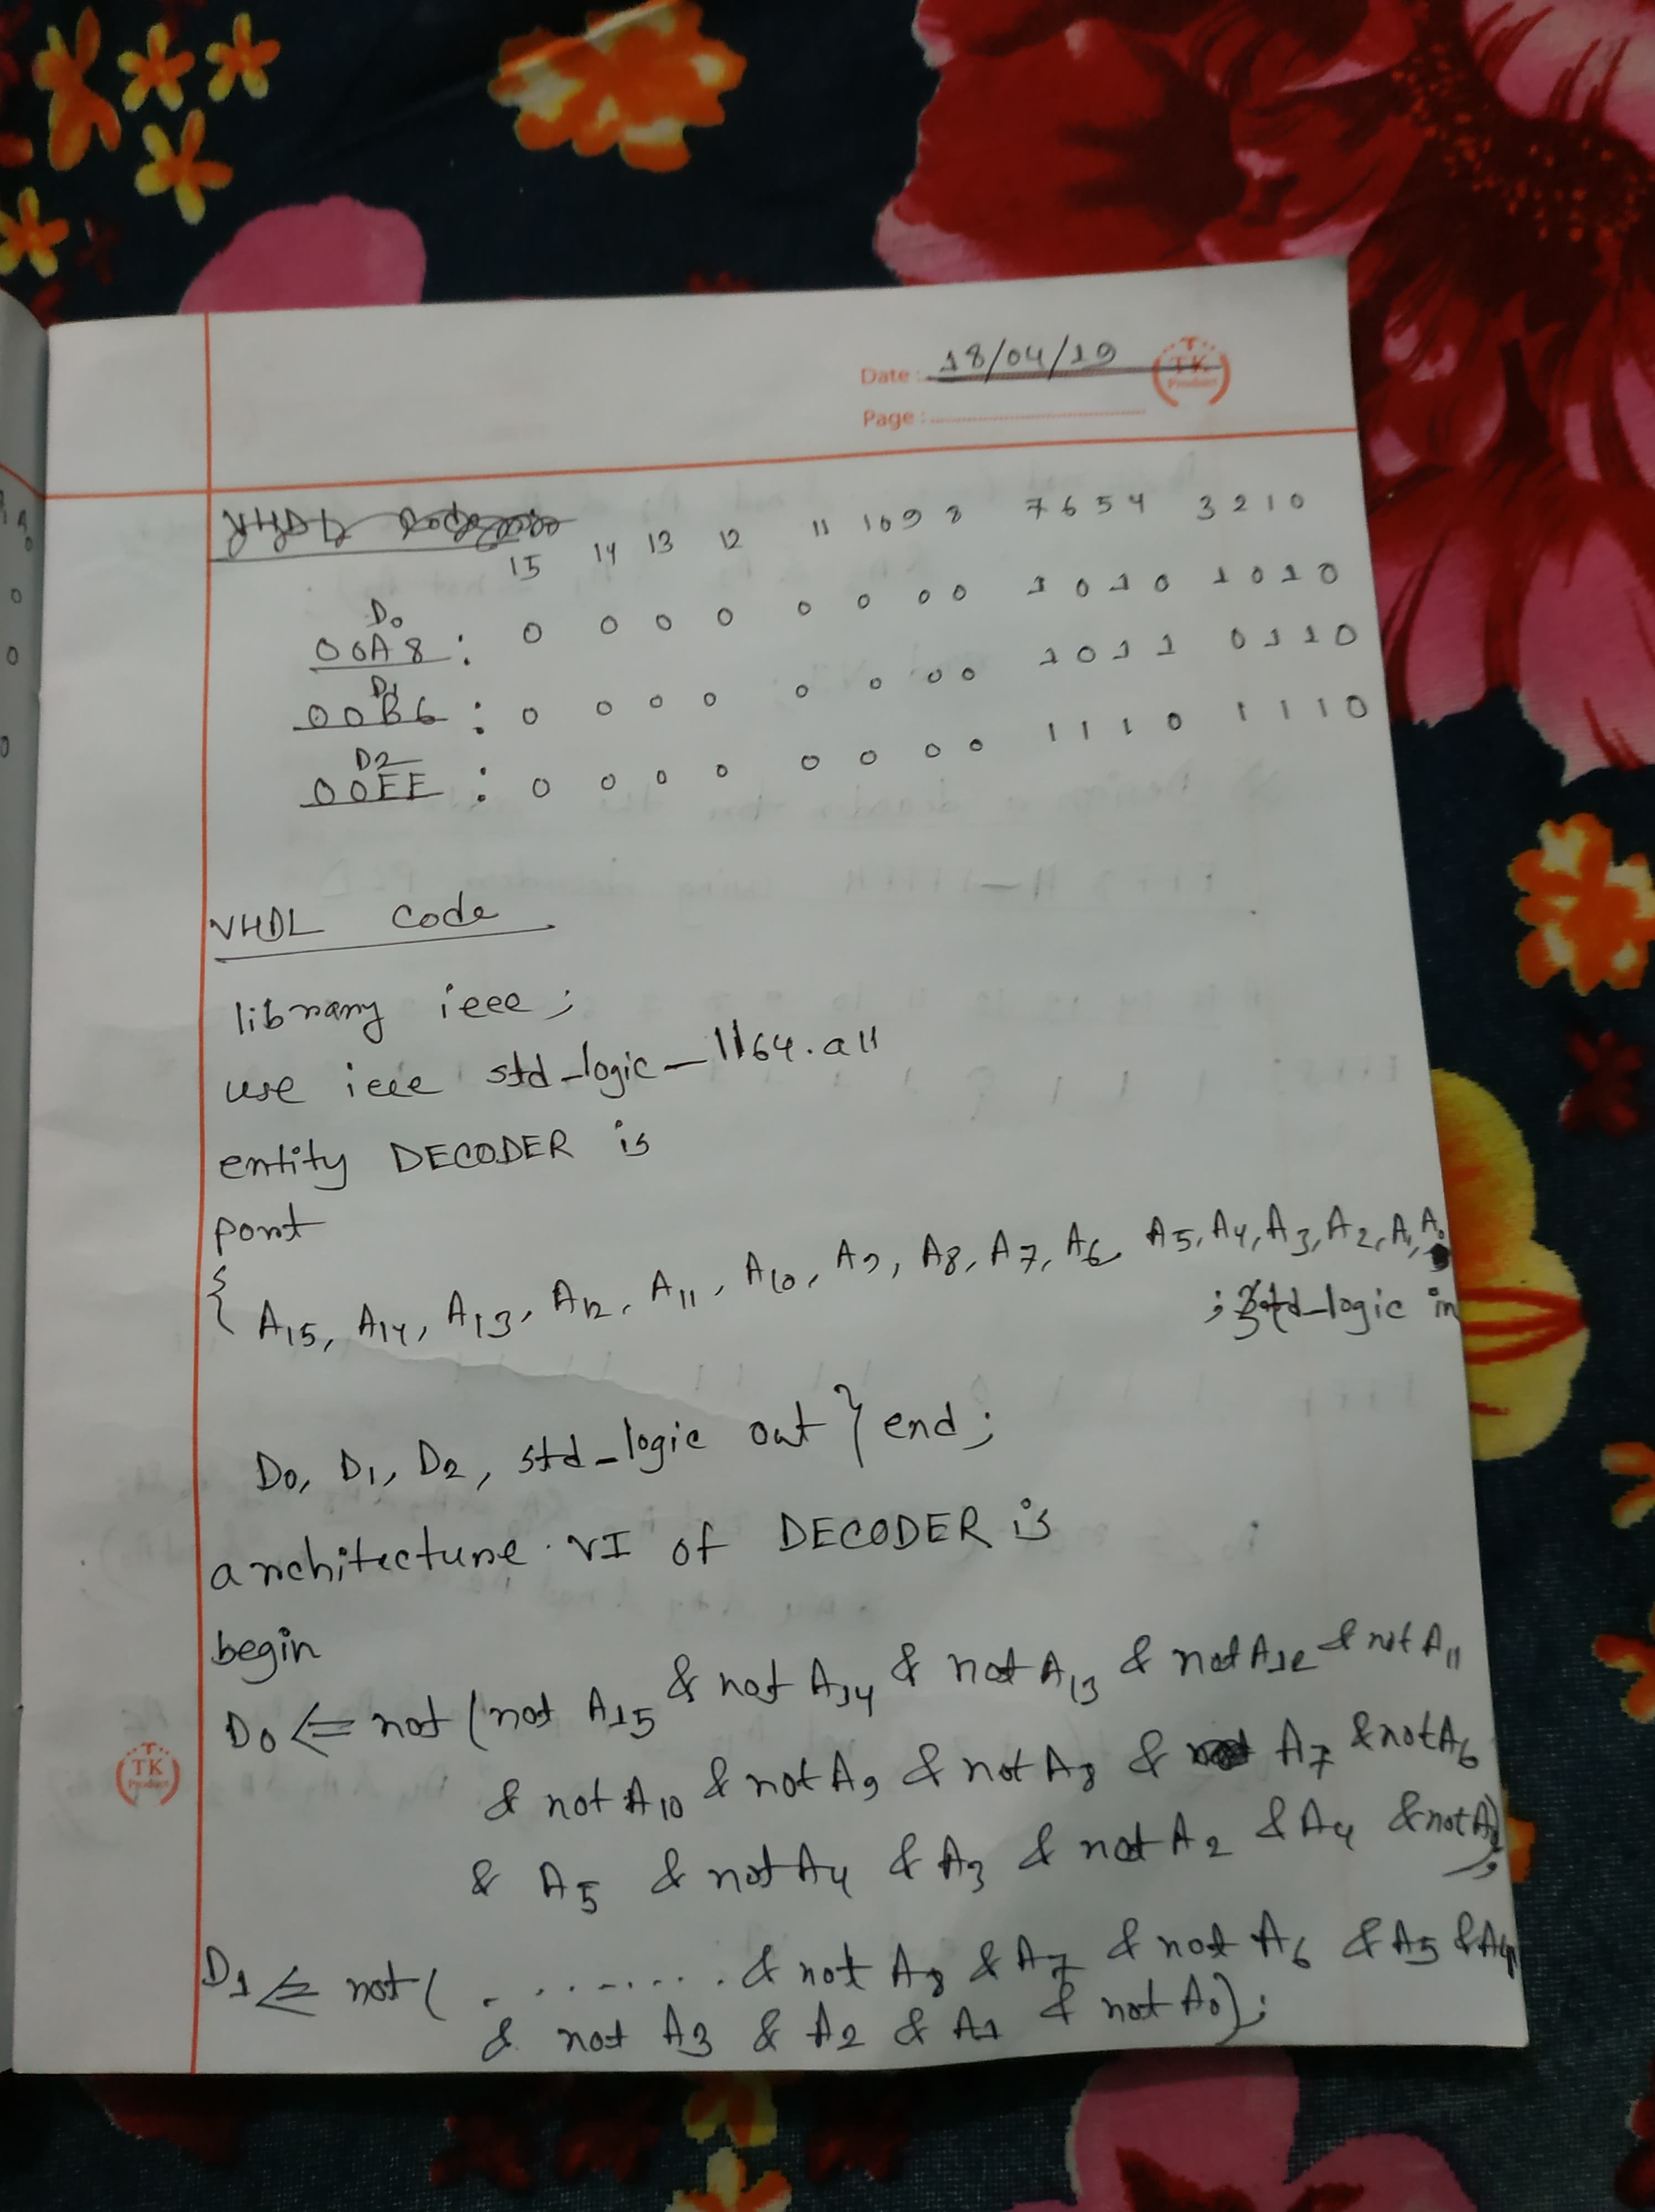 Date: 18/04/19
TK
Product
Page:
15 14 13 12 11 10 9 8 7 6 5 4 3 2 1 0
D0
00A8 : 0 0 0 0 0 0 0 0 1 0 1 0 1 0 1 0
D1
00B6 : 0 0 0 0 0 0 0 0 1 0 1 1 0 1 1 0
D2
00EE : 0 0 0 0 0 0 0 0 1 1 1 0 1 1 1 0
VHDL Code
library ieee;
use ieee std_logic_1164.all
entity DECODER is
port
{ A15, A14, A13, A12, A11, A10, A9, A8, A7, A6, A5, A4, A3, A2, A1, A0
; std_logic in
D0, D1, D2, std_logic out } end;
architecture VI of DECODER is
begin
D0 <= not (not A15 & not A14 & not A13 & not A12 & not A11
& not A10 & not A9 & not A8 & A7 & not A6
& A5 & not A4 & A3 & not A2 & A4 & not
D1 <= not ( ......... & not A8 & A7 & not A6 & A5 & A4
& not A3 & A2 & A1 & not A0);
TK
Product